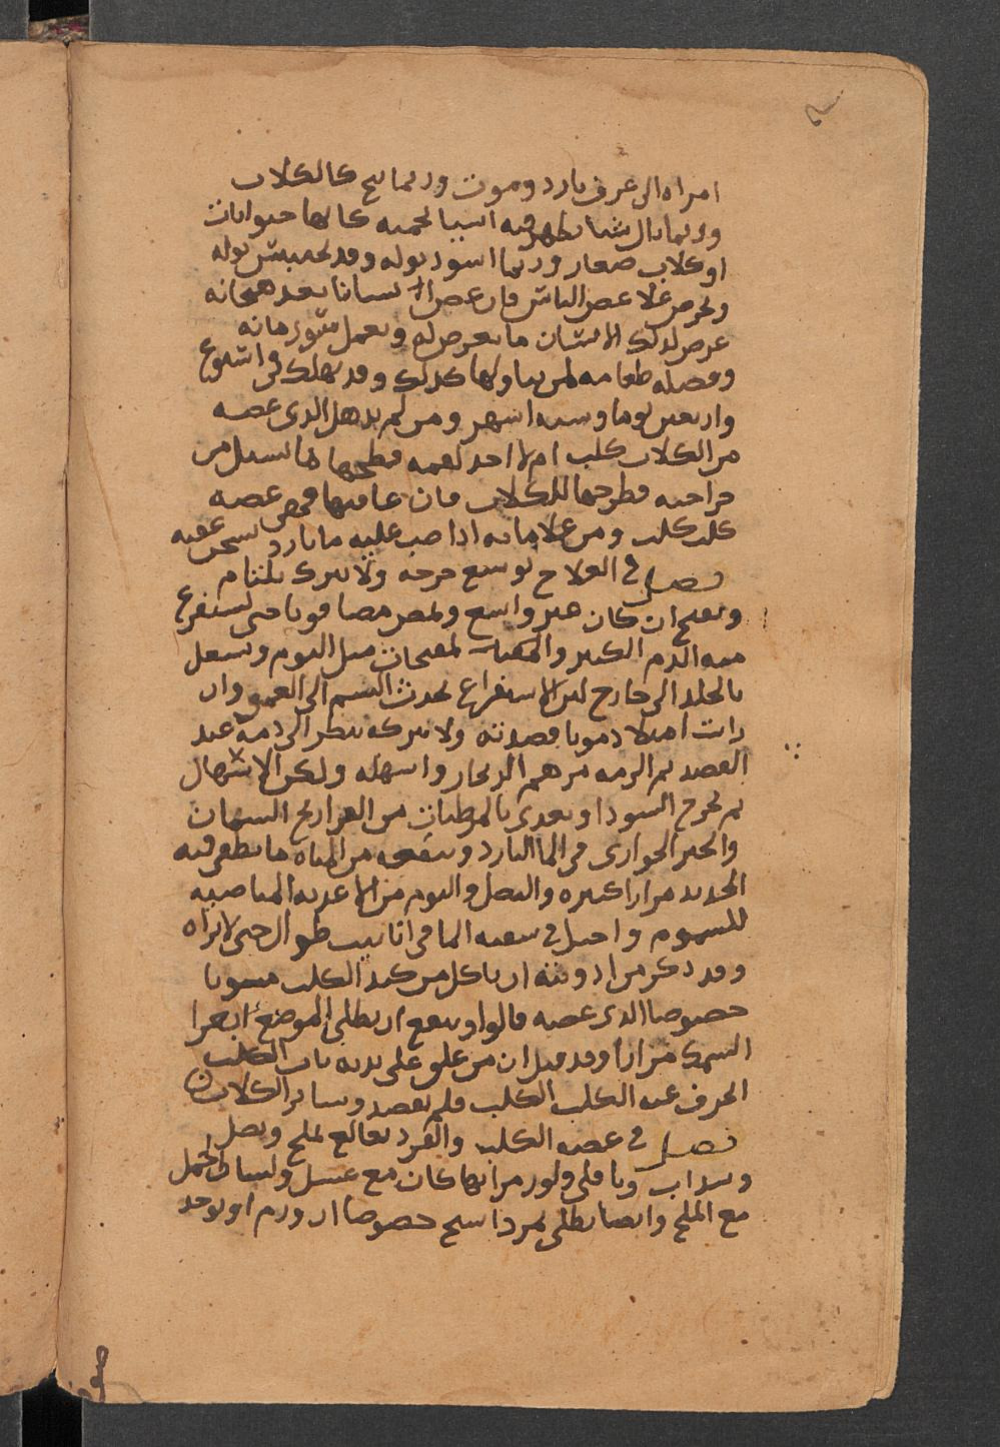 امراه الى عرق بارد وموت وربما نبح كالكلاب
وربما بال شيا يظهر فيه اشيا لحميه كانها حيوانات
او كلاب صغار وربما اسود بوله وقد يحتبس بوله
ويحرص علا عض الناس فان عض انسانا بعد هيجانه
عرض لذلك الانسان ما يعرض له ويعمل سور مائه
وفضله طعامه لمن يتناولها كذلك وقد يهلك في اسبوع
واربعين يوما وسته اشهر ومن لم يدر هل الذي عضه
من الكلاب كلب ام لا اخذ لقمه فطخها بما يسيل من
جراحته فطرحها للكلاب فان عافتها فمن عضه
كلب كلب ومن علاماته اذا صب عليه ما بارد سخن عقبه
فصل في العلاج توسيع جرحه ولا يترك يلتام
ويفتح ان كان غير واسع ويمص مصا قويا حتى يستفرغ
منه الدم الكثير والمقيات لمفتحات مثل الثوم وتشعل
بالجلد الى خارج لئن الاستفراغ يحدث السم الى العمق وان
رايت امتلا دمويا فصدته ولا تتركه ينظر الى دمه عند
الفصد ثم الزمه مرهم الزنجار واسهله وليكن الاسهال
بم يخرج السودا ويغدى بالمرطبات من الفراريج السمان
والخبز الحوارى في الما البارد وينفعه من المياه ما يطفى فيه
الحديد مرارا كثيره والبصل والثوم من الاغديه المناصبه
للسموم واحتل في سقيه الما في انابيب طوال حتى لا يراه
وقد ذكر من ادويته ان ياكل من كبد الكلب مشويا
خصوصا الذي عضه قالوا وينفع ان يطلى الموضع بغرا
السمك مرارا وقد قيل ان من علق على بدنه ناب الكلب
انحرف عنه الكلب الكلب فلم يقصد وساير الكلاب
فصل في عضه الكلب والقرد يعالج بملح وبصل
وسداب وباقلى ولوز مر ايها كان مع عسل ولسان الحمل
مع الملح وايضا يطلى بمرداسنج خصوصا ان ورم او يوخد